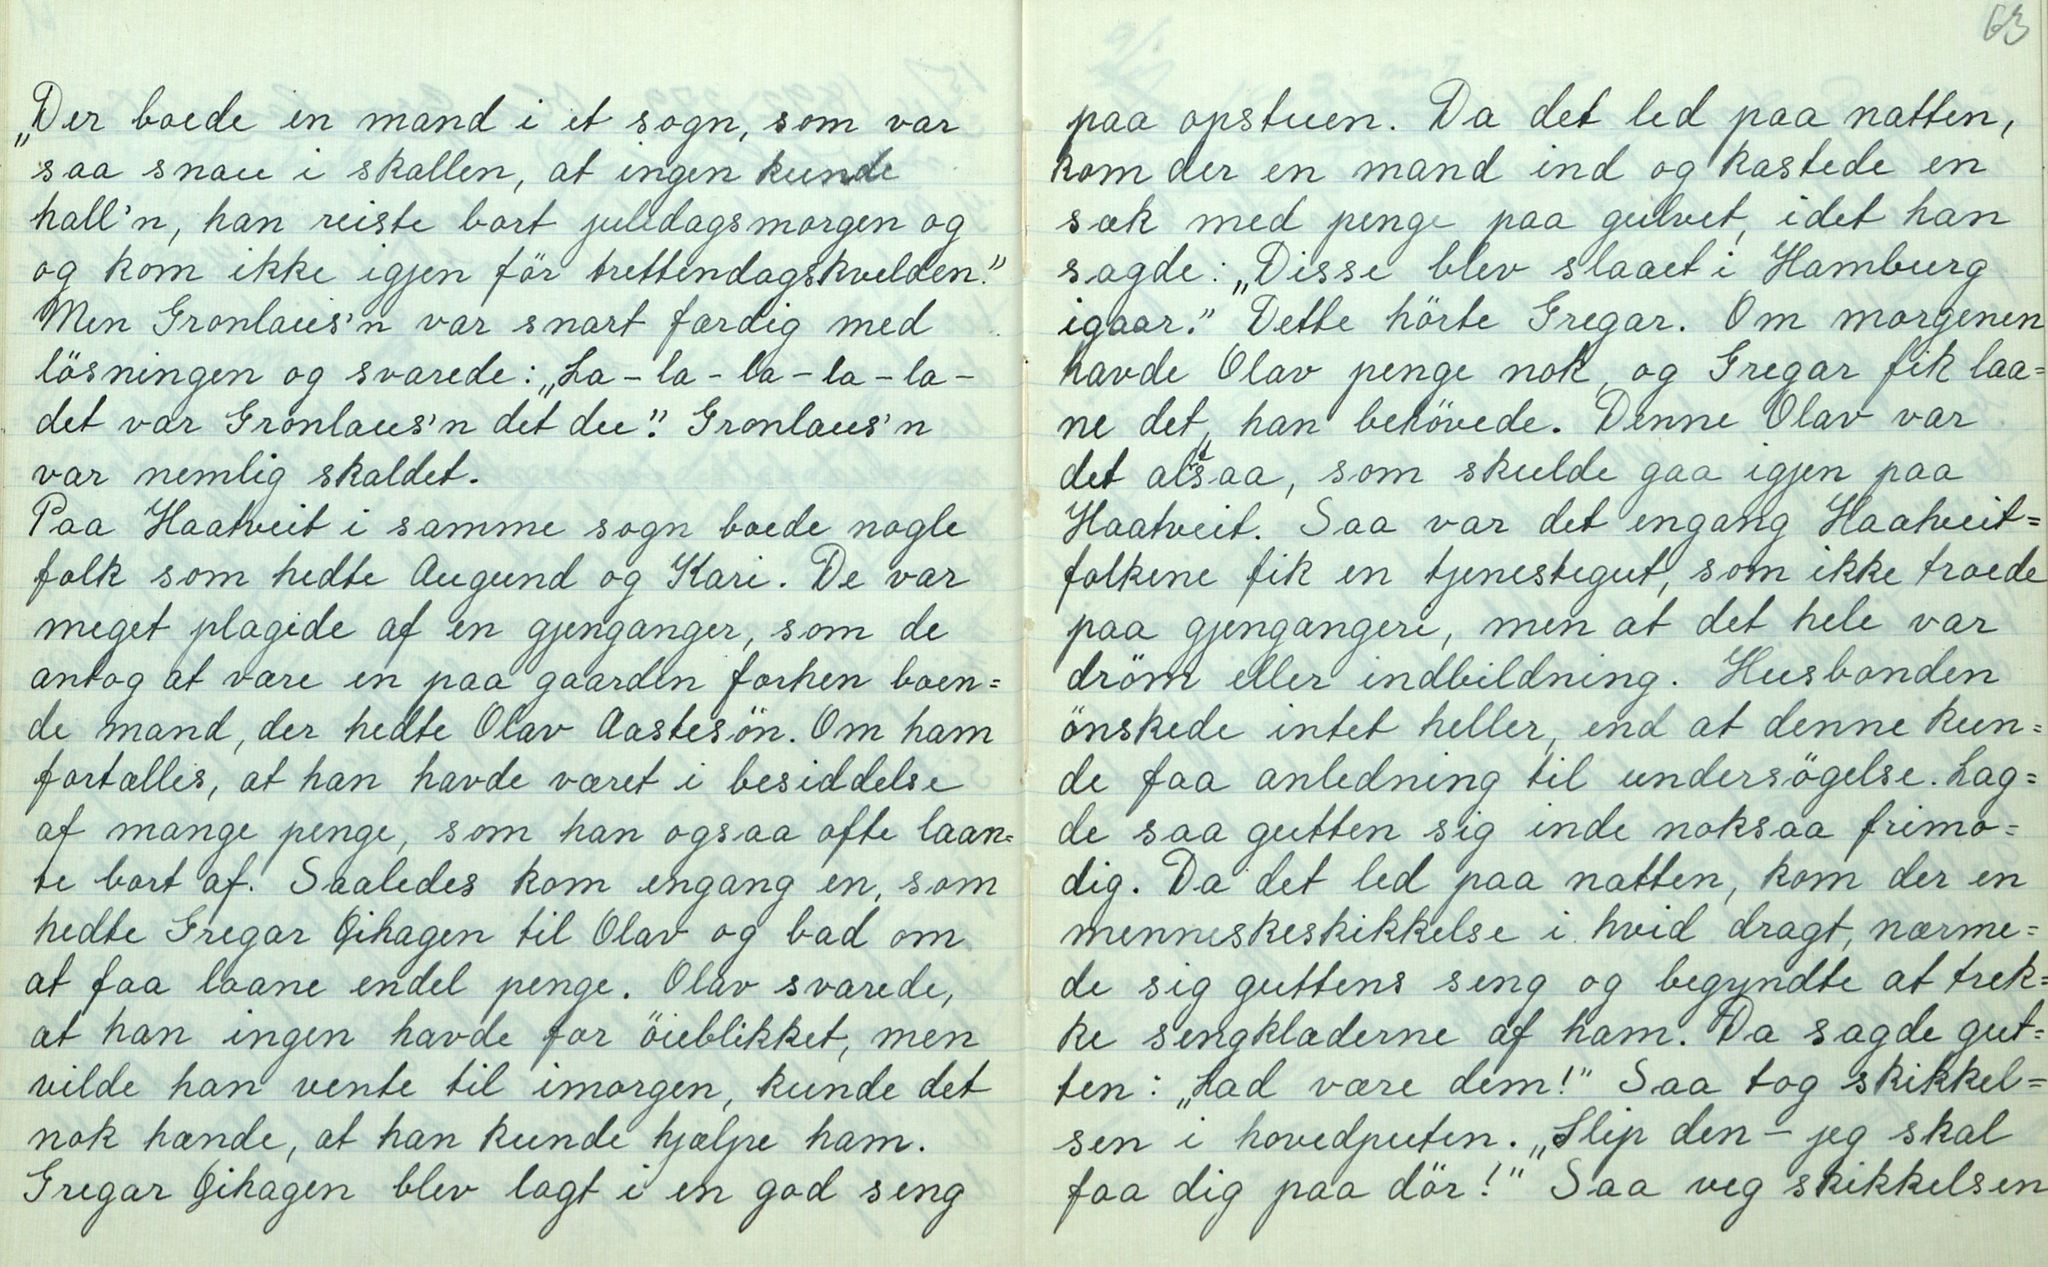 „Der boede en mand i et sogn, som var
saa snau i skallen, at ingen kunde
hall'n, han reiste bort juledagsmorgen og
og kom ikke igjen för trettendagskvelden."
Men Gronlaus'n var snart færdig med
lösningen og svarede: „La - la - la - la - la -
det var Gronlaus'n det du". Gronlaus'n
var nemlig skaldet.
Paa Haatveit i samme sogn boede nogle
folk som hedte Augund og Kari. De var
meget plagede af en gjenganger, som de
antog at være en paa gaarden forhen boen=
de mand, der hedte Olav Aastesön. Om ham
fortælles, at han havde været i besiddelse
af mange penge, som han ogsaa ofte laan=
te bort af. Saaledes kom engang en, som
hedte Gregar Qihagen til Olav og bad om
at faa laane endel penge. Olav svarede,
at han ingen havde for öieblikket, men
vilde han vente til imorgen, kunde det
nok hænde, at han kunde hjælpe ham.
Gregar Qihagen blev lagt i en god seng
63
paa opstuen. Da det led paa natten,
kom der en mand ind og kastede en
sæk med penge paa gulvet, idet han
sagde: „Disse blev slaaet i Hamburg
igaar." Dette hörte Gregar. Om morgenen
havde Olav penge nok, og Gregar fik laa=
ne det, han behövede. Denne Olav var
det altsaa, som skulde gaa igjen paa
Haatveit. Saa var det engang Haatveit=
folkene fik en tjenestegut, som ikke troede
paa gjengangere, men at det hele var
dröm eller indbildning. Husbonden
önskede intet heller, end at denne kun=
de faa anledning til undersögelse. Lag=
de saa gutten sig inde noksaa frimo=
dig. Da det led paa natten, kom der en
menneskeskikkelse i hvid dragt, nærme=
de sig guttens seng og begyndte at trek=
ke sengklæderne af ham. Da sagde gut=
ten: „Lad være dem!" Saa tog skikkel=
sen i hovedputen. „Slip den - jeg skal
faa dig paa dör!" Saa veg skikkelsen